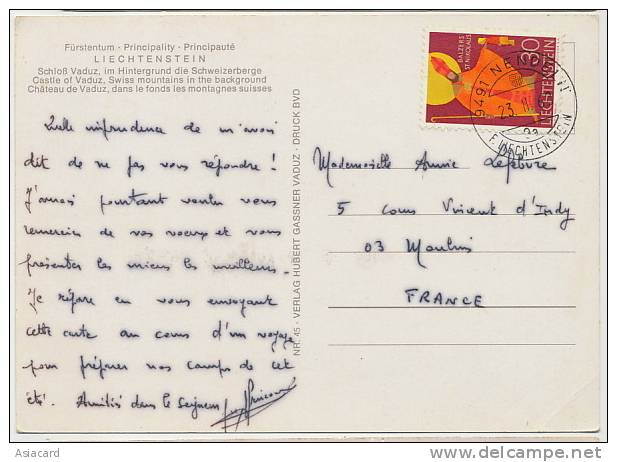 Fürstentum · Principality · Principauté
LIECHTENSTEIN
Schloß Vaduz, im Hintergrund die Schweizerberge
Castle of Vaduz, Swiss mountains in the background
Château de Vaduz, dans le fonds les montagnes suisses
Quelle imprudence de m'avoir
dit de ne pas vous répondre !
J'aurais pourtant voulu vous
remercier de vos voeux et vous
présenter les miens les meilleurs.
Je répare en vous envoyant
cette carte au cours d'un voyage
pour préparer nos camps de cet
été. Amitiés dans le Seigneur
NR. 45 - VERLAG HUBERT GASSNER VADUZ - DRUCK BVD
BALZERS
ST. NIKOLAUS
30
LIECHTENSTEIN
9491 NENDELN
23. 11.
F. LIECHTENSTEIN
Mademoiselle Annie Lefebvre
5 cours Vincent d'Indy
03 Moulins
FRANCE
Asiacard
www.delcampe.net